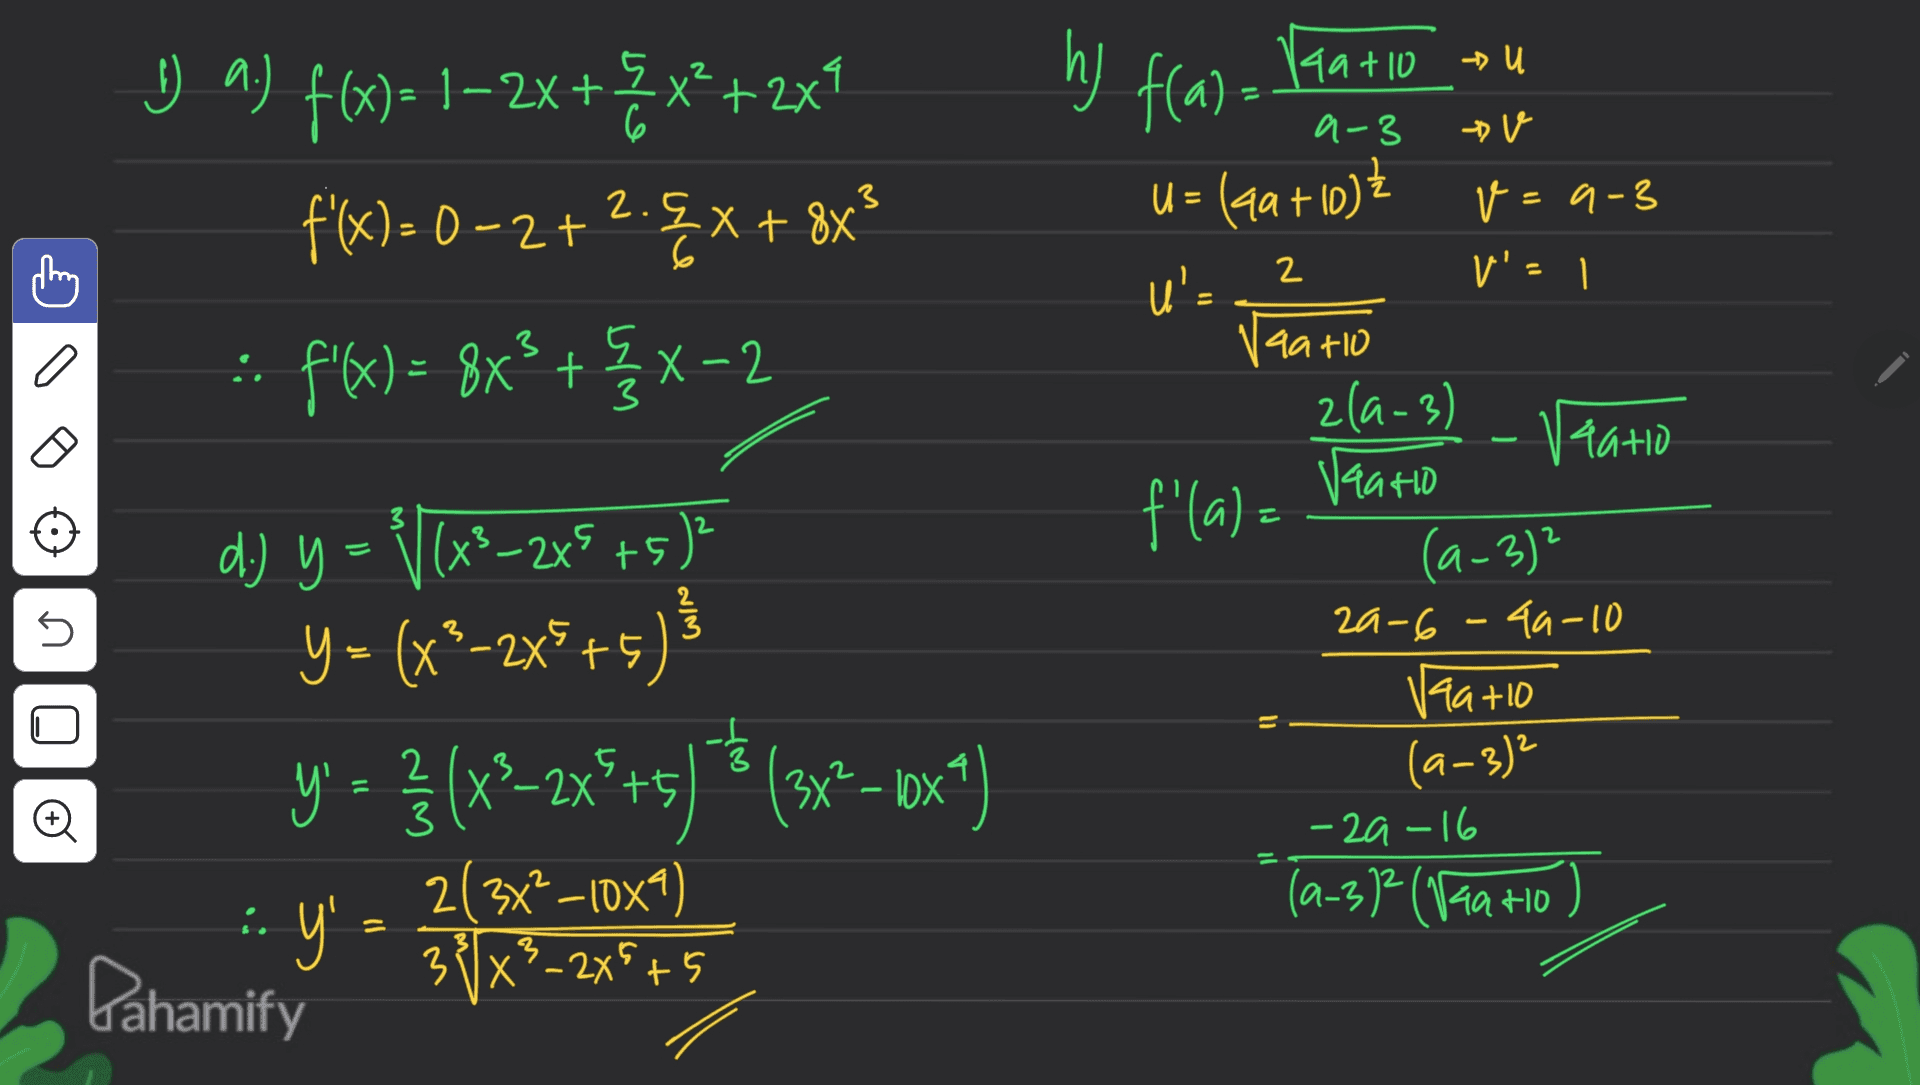 1) a.) f(x) = 1 - 2x + 5/6 x² + 2x⁴
f'(x) = 0 - 2 + 2 · 5/6 x + 8x³
∴ f'(x) = 8x³ + 5/3 x - 2
d.) y = ³√(x³ - 2x⁵ + 5)²
y = (x³ - 2x⁵ + 5)^(2/3)
y' = 2/3 (x³ - 2x⁵ + 5)^(-1/3) (3x² - 10x⁴)
∴ y' = 2(3x² - 10x⁴) / 3 ³√x³ - 2x⁵ + 5
h) f(a) = √4a+10 → u / a-3 → v
u = (4a + 10)^(1/2) v = a - 3
u' = 2 / √4a+10 v' = 1
f'(a) = (2(a-3) / √4a+10 - √4a+10) / (a-3)²
= ((2a - 6 - 4a - 10) / √4a+10) / (a-3)²
= (-2a - 16) / (a-3)² (√4a+10)
Pahamify